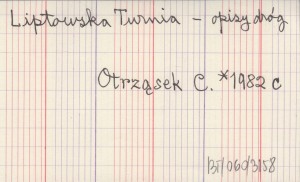 Liptowska Turnia - opisy dróg
Otrząsek C. *1982 c
BT/060/3158